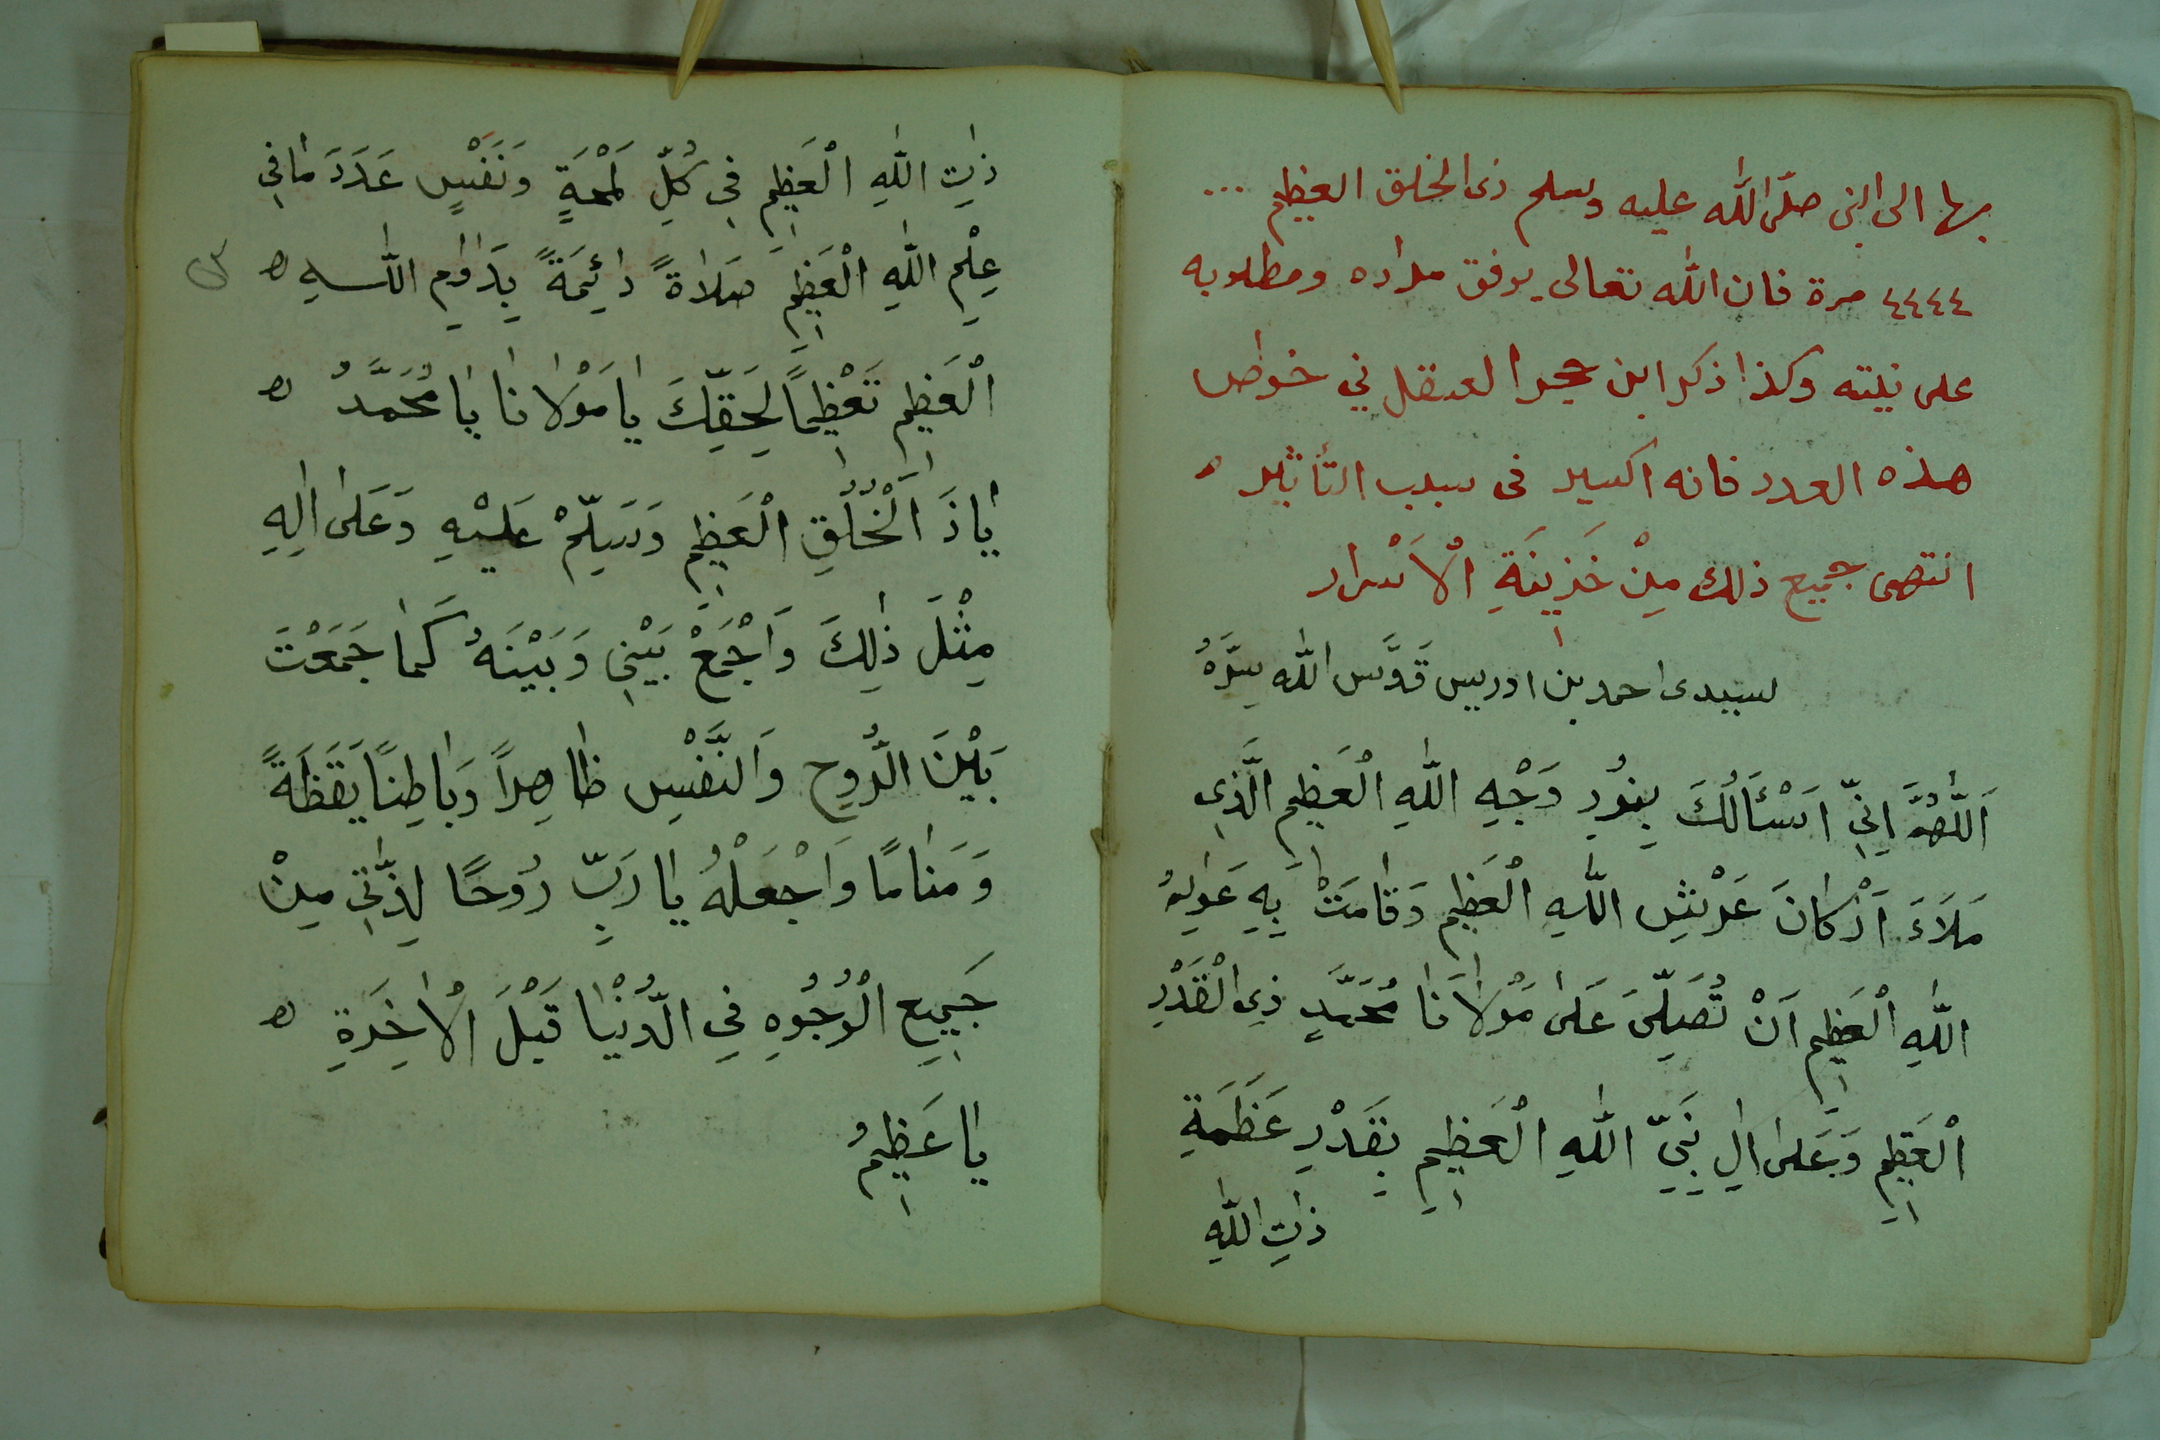 بها الى النبى صلّى اللّٰه عليه وسلم ذى الخلق العظيم ...
٤٤٤٤ مرة فان اللّٰه تعالى يوفق مراده ومطلوبه
على نيته وكذا ذكر ابن حجر العسقلاني خواص
هذه العدد فانه اكسير فى سبب التأثير ه
انتهى جميع ذلك مِنْ خَزِينَةِ الْاَسْرار
لسيدى احمد بن ادريس قَدَّس اللّٰه سِرَّهُ
اَللّٰهُمَّ اِنِّى اَسْئَالُكَ بِنُورِ وَجْهِ اللّٰهِ الْعَظِيمِ الَّذِى
مَلَاءَ اَرْكانَ عَرْشِ اللّٰهِ الْعَظِيمِ وَقامَتْ بِهِ عَوالِمُ
اللّٰهِ الْعَظِيمِ اَنْ تُصَلِّىَ عَلىٰ مَوْلَانَا مُحَمَّدٍ ذِى الْقَدْرِ
الْعَظِيمِ وَعَلىٰ اٰلِ نَبِىِّ اللّٰهِ الْعَظِيمِ بِقَدْرِ عَظَمَةِ
ذاتِ اللّٰهِ
ذاتِ اللّٰهِ الْعَظِيمِ فِى كُلِّ لَمْحَةٍ وَنَفَسٍ عَدَدَ مٰا فِى
عِلْمِ اللّٰهِ الْعَظِيمِ صَلاةً دائِمَةً بِدَوٰامِ اللّٰهِ ه
الْعَظِيمِ تَعْظِيمًا لِحَقِّكَ يٰا مَوْلٰانا يٰا مُحَمَّدُ ه
يٰا ذَا الْخُلُقِ الْعَظِيمِ وَسَلِّمْ عَلَيْهِ وَعَلىٰ اٰلِهِ
مِثْلَ ذٰلِكَ وَاجْمَعْ بَيْنِى وَبَيْنَهُ كَمٰا جَمَعْتَ
بَيْنَ الرُّوحِ وَالنَّفْسِ ظٰاهِراً وَبٰاطِنًا يَقَظَةً
وَمَنٰامًا وَاجْعَلْهُ يٰا رَبِّ رُوحًا لِذٰاتِى مِنْ
جَمِيعِ الْوُجُوهِ فِى الدُّنْيٰا قَبْلَ الْاٰخِرَةِ ه
يٰا عَظِيمُ